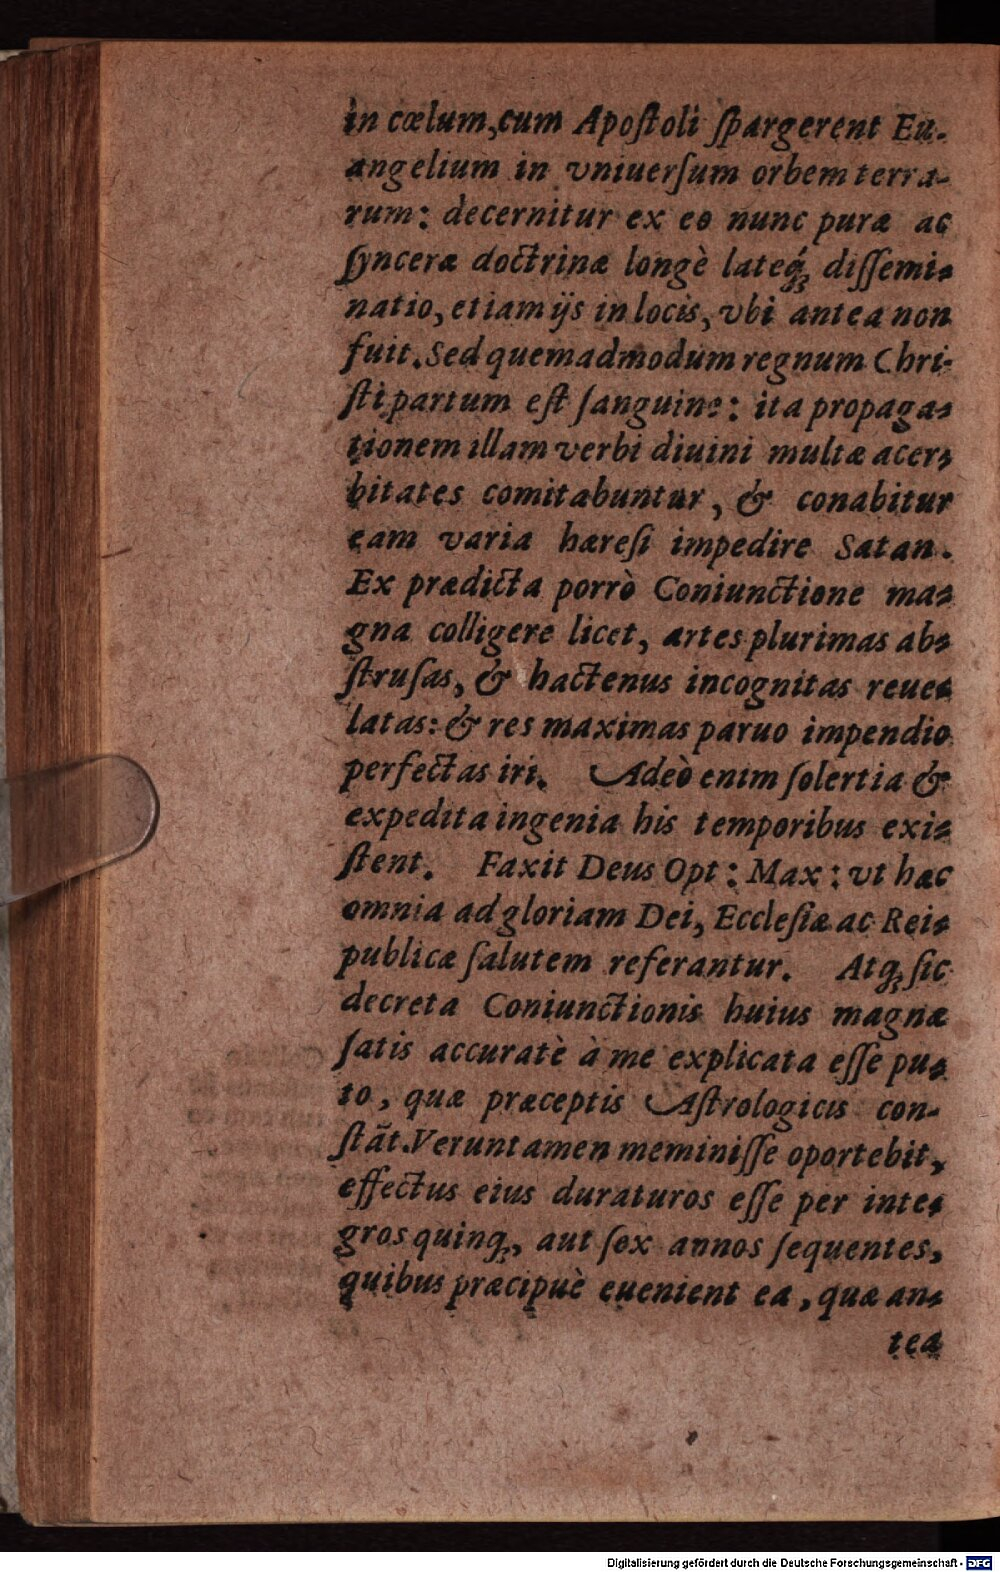 in cœlum, cum Apoſtoli ſpargerent Eu-
angelium in vniuerſum orbem terra-
rum: decernitur ex eo nunc puræ ac
ſynceræ doctrinæ longè lateq́ꝫ diſſemi-
natio, etiam ijs in locis, vbi antea non
fuit. Sed quemadmodum regnum Chri-
ſti partum eſt ſanguine: ita propaga-
tionem illam verbi diuini multæ acer-
bitates comitabuntur, & conabitur
eam varia hæreſi impedire Satan.
Ex prædicta porrò Coniunctione ma-
gna colligere licet, artes plurimas ab-
ſtruſas, & hactenus incognitas reue-
latas: & res maximas paruo impendio
perfectas iri. Adeò enim ſolertia &
expedita ingenia his temporibus exi-
ſtent. Faxit Deus Opt: Max: vt hæc
omnia ad gloriam Dei, Eccleſiæ ac Rei-
publicæ ſalutem referantur. Atqꝫ ſic
decreta Coniunctionis huius magnæ
ſatis accuratè à me explicata eſſe pu-
to, quæ præceptis Aſtrologicis con-
ſtāt. Veruntamen meminiſſe oportebit,
effectus eius duraturos eſſe per inte-
gros quinqꝫ, aut ſex annos ſequentes,
quibus præcipuè euenient ea, quæ an-
tea
Digitalisierung gefördert durch die Deutsche Forschungsgemeinschaft - DFG